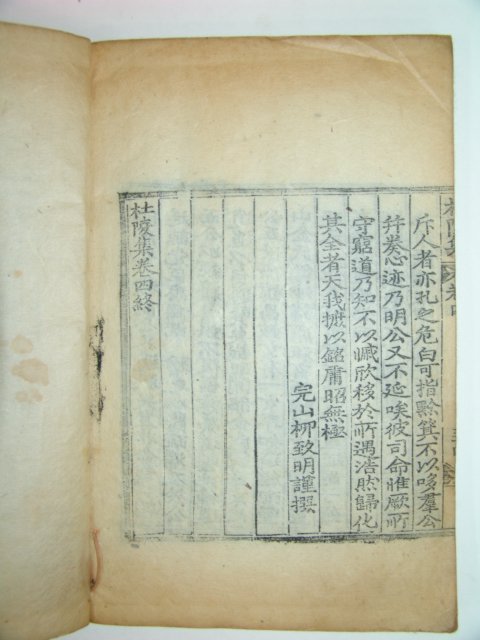 斥人者亦孔之危白可指黥箕不以哆羣公
幷奏心迹乃明公又不延唉彼司命惟厥所
守窮道乃知不以慽欣移於所遇浩然歸化
其全者天我摭以銘庸昭無極
完山柳致明謹撰
杜陵集卷四終